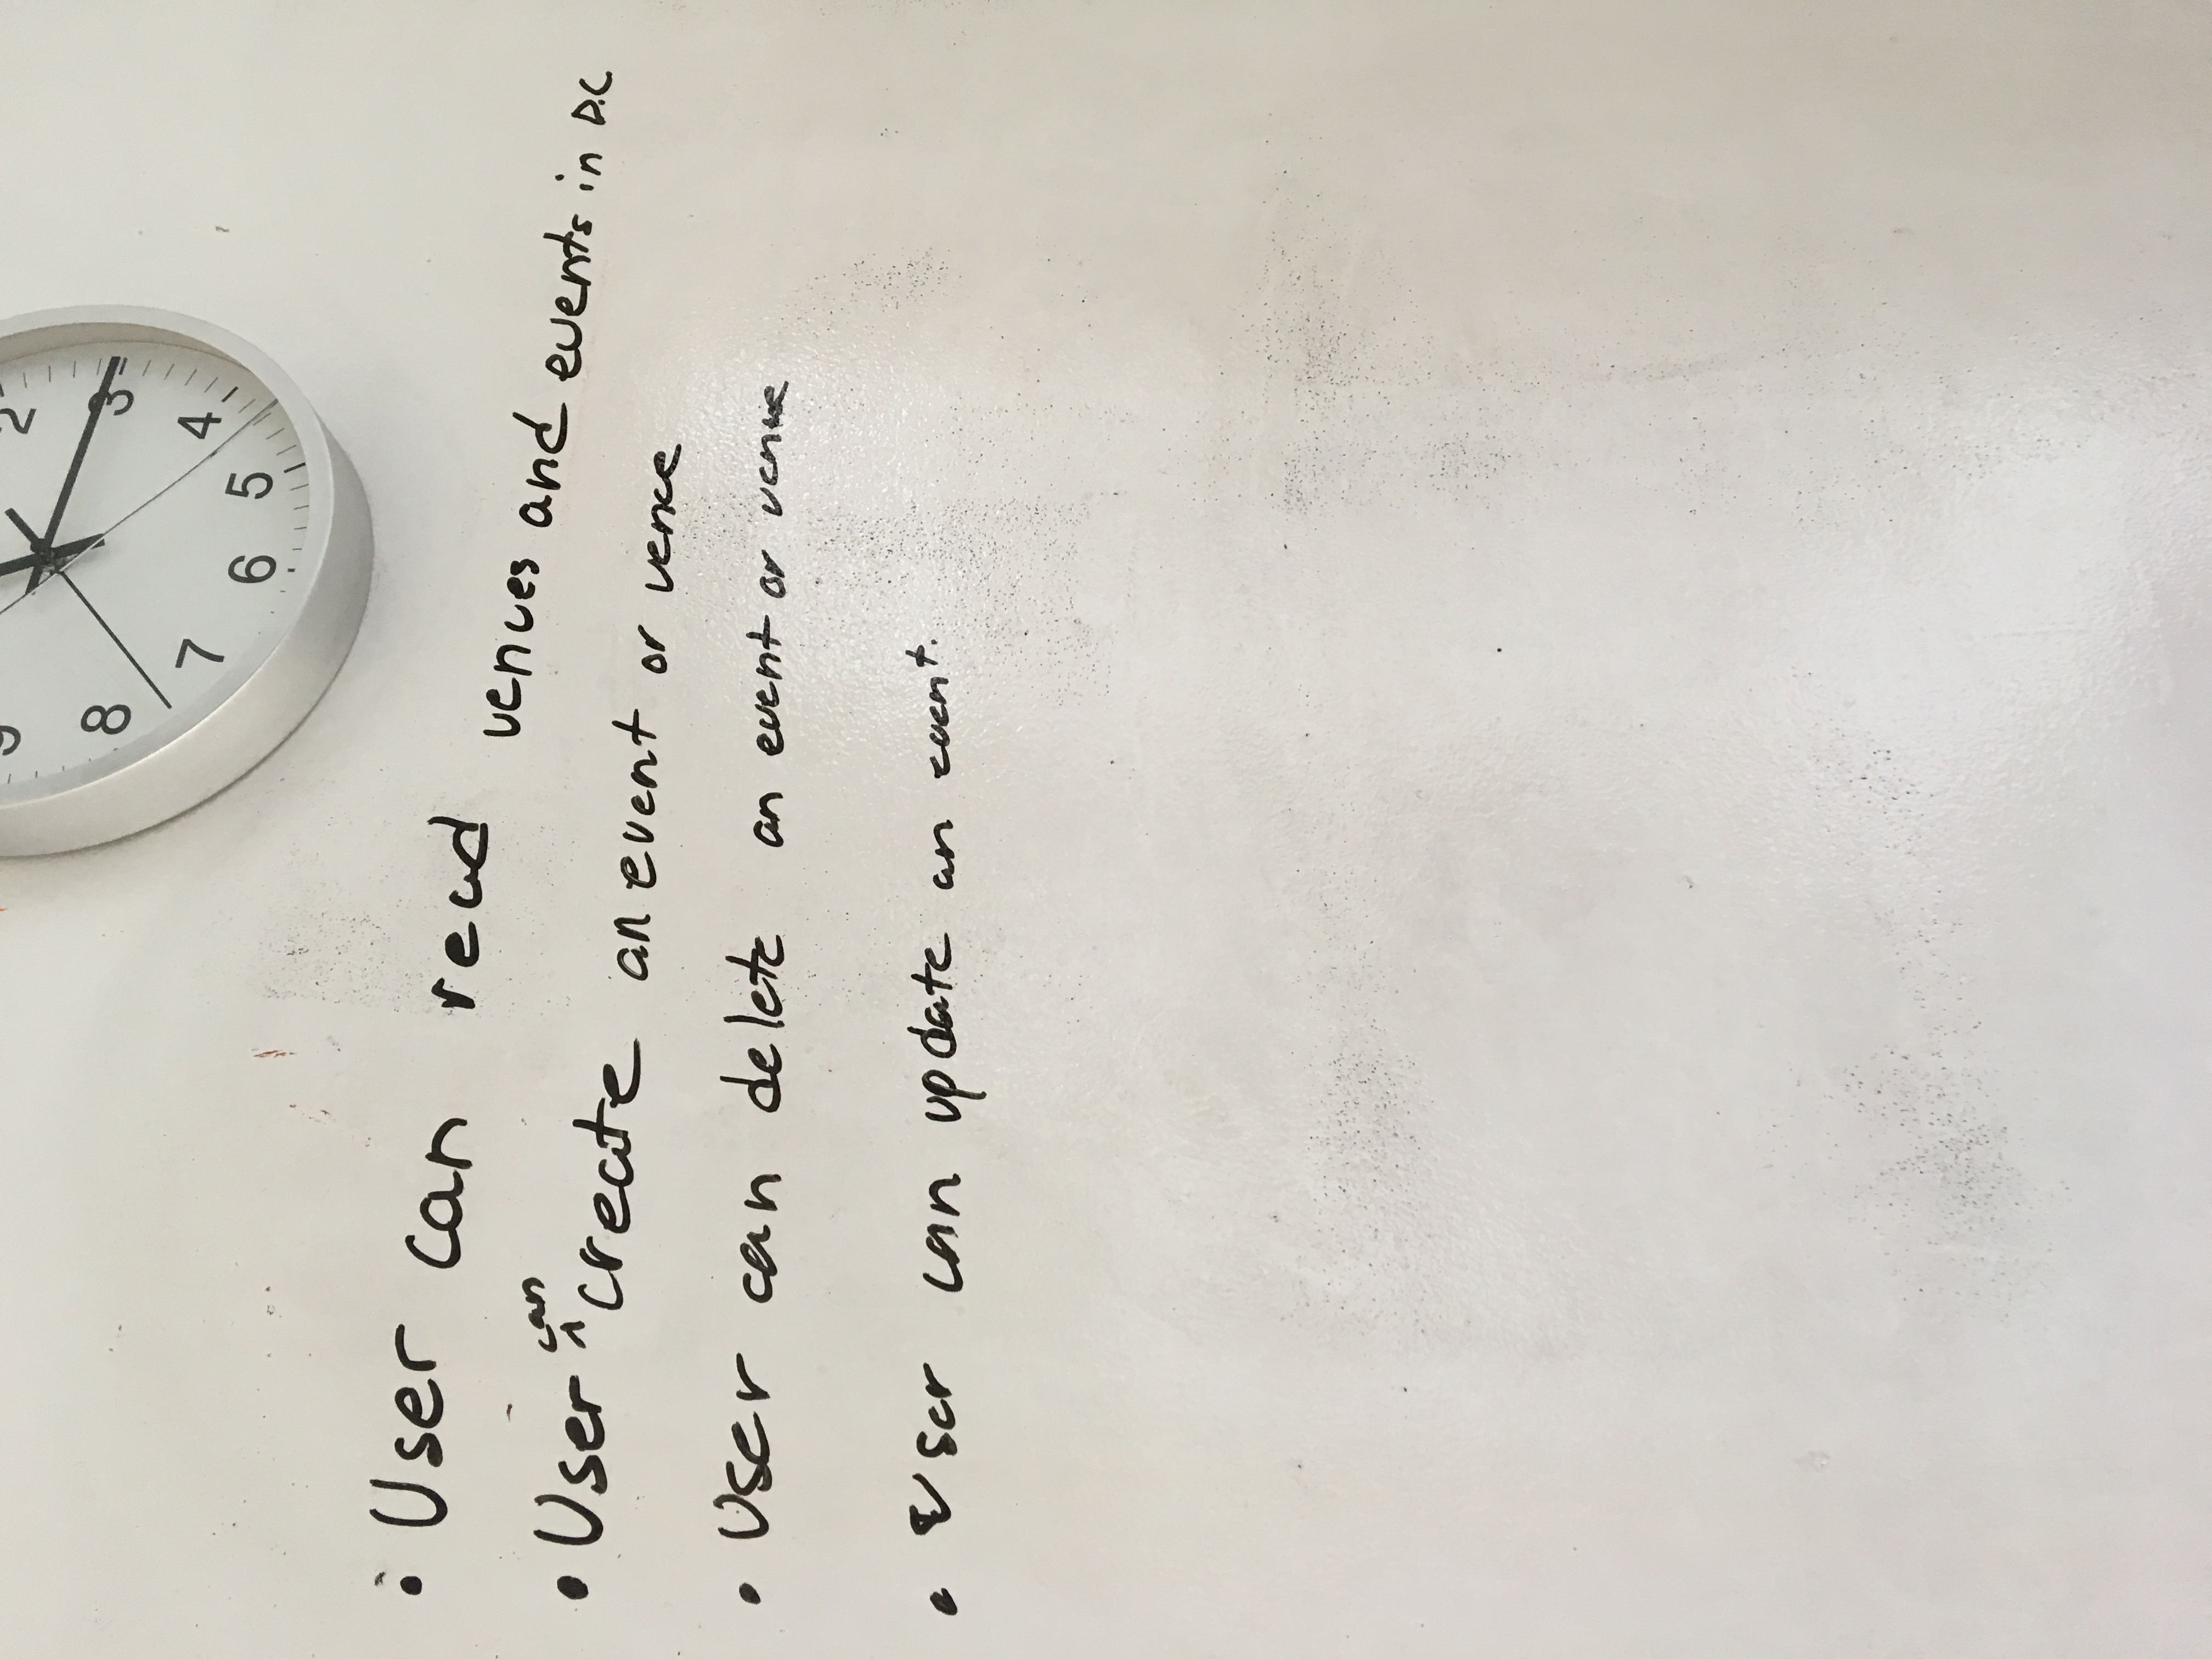 9 2
8 3
7 4
6 5
• User can read venues and events in D.C
• User can create an event or venue
• User can delete an event or venue
• User can update an event.